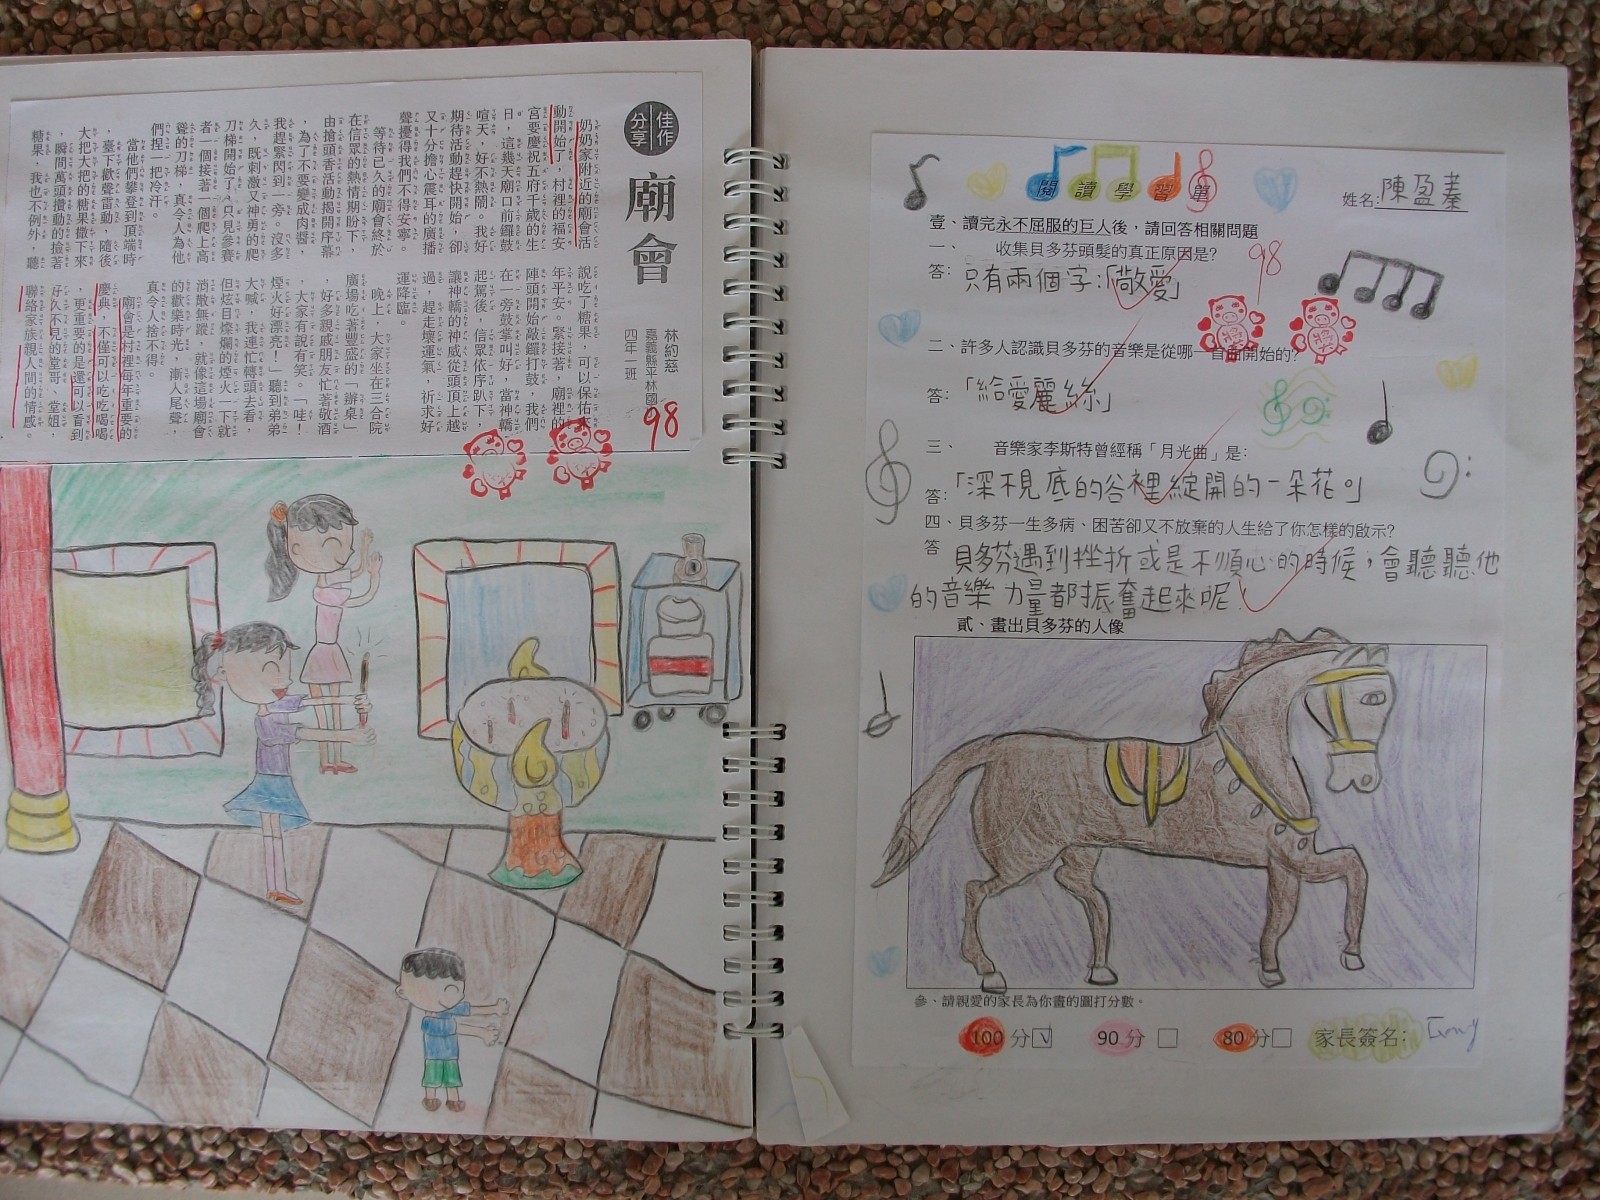 佳作
分享
廟會
嘉義縣平林國
四年一班
林約慈
奶奶家附近的廟會活
動開始了,村裡的福安
宮要慶祝五府千歲的生
日,這幾天廟口前鑼鼓
喧天,好不熱鬧。我好
期待活動趕快開始,卻
又十分擔心震耳的廣播
聲擾得我們不得安寧。
等待已久的廟會終於
在信眾的熱情期盼下,
由搶頭香活動揭開序幕
,為了不要變成肉醬,
我趕緊閃到一旁。沒多
久,既刺激又神勇的爬
刀梯開始了,只見參賽
者一個接著一個爬上高
聳的刀梯,真令人為他
們捏一把冷汗。
當他們攀登到頂端時
,臺下歡聲雷動,隨後
大把大把的糖果撒下來
,瞬間萬頭攢動的撿著
糖果,我也不例外,聽
說吃了糖果,可以保佑來
年平安。緊接著,廟裡的
陣頭開始敲鑼打鼓,我們
在一旁鼓掌叫好,當神轎
起駕後,信眾依序趴下,
讓神轎的神威從頭頂上越
過,趕走壞運氣,祈求好
運降臨。
晚上,大家坐在三合院
廣場吃著豐盛的「辦桌」
,好多親戚朋友忙著敬酒
,大家有說有笑。「哇!
煙火好漂亮!」聽到弟弟
大喊,我連忙轉頭去看,
但炫目燦爛的煙火一下就
消散無蹤,就像這場廟會
的歡樂時光,漸入尾聲,
真令人捨不得。
廟會是村裡每年重要的
慶典,不僅可以吃吃喝喝
,更重要的是還可以看到
好久不見的堂哥、堂姐,
聯絡家族親人間的情感。
98
閱讀學習單
姓名:陳盈蓁
壹、讀完永不屈服的巨人後,請回答相關問題
一、 收集貝多芬頭髮的真正原因是?
98
答:只有兩個字:「敬愛」
二、許多人認識貝多芬的音樂是從哪一首曲開始的?
答:「給愛麗絲」
三、 音樂家李斯特曾經稱「月光曲」是:
答:「深不見底的谷裡綻開的一朵花。」
四、貝多芬一生多病、困苦卻又不放棄的人生給了你怎樣的啟示?
答 貝多芬遇到挫折或是不順心的時候,會聽聽他
的音樂力量都振奮起來呢
貳、畫出貝多芬的人像
參、請親愛的家長為你畫的圖打分數。
100 分 90 分 80 分 家長簽名: